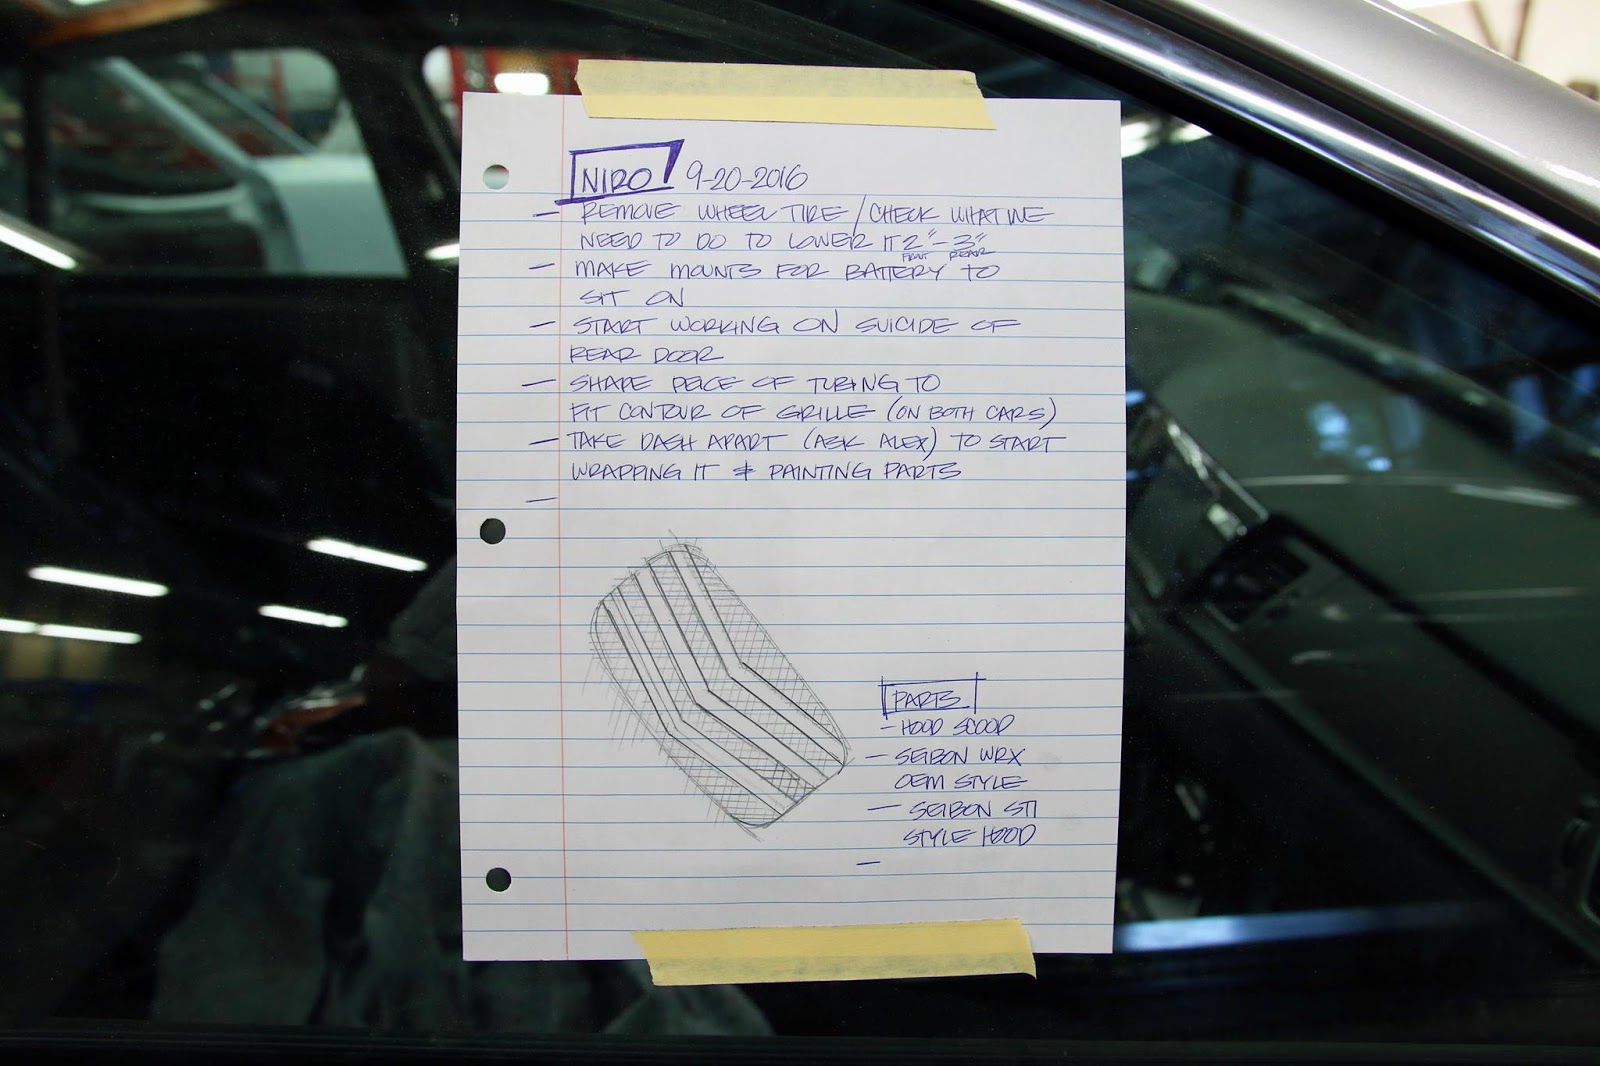 NIRO 9-20-2016
- REMOVE WHEEL TIRE / CHECK WHAT WE
NEED TO DO TO LOWER IT 2" - 3"
FRONT REAR
- MAKE MOUNTS FOR BATTERY TO
SIT ON
- START WORKING ON SUICIDE OF
REAR DOOR
- SHAPE PEICE OF TUBING TO
FIT CONTOUR OF GRILLE (ON BOTH CARS)
- TAKE DASH APART (ASK ALEX) TO START
WRAPPING IT & PAINTING PARTS
-
PARTS
- HOOD SCOOP
- SEIBON WRX
OEM STYLE
- SEIBON STI
STYLE HOOD
-